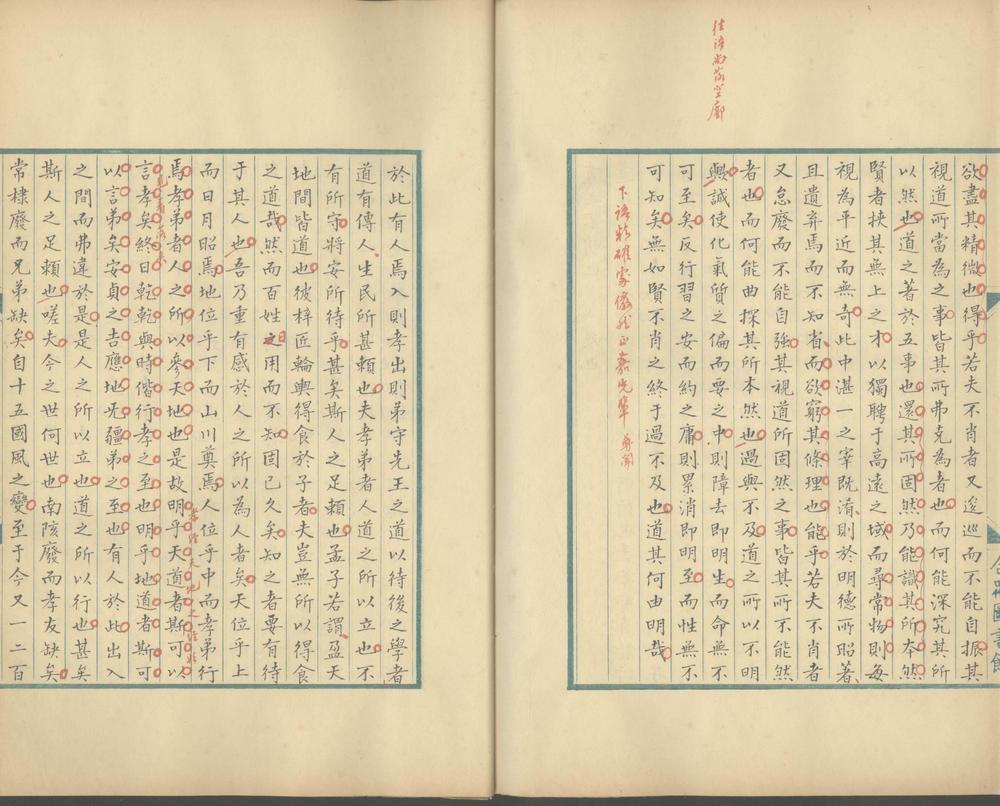 往語尚落空廓
欲盡其精微也得乎若夫不肖者又逡巡而不能自振其
視道所當為之事皆其所弗克為者也而何能深究其所
以然也道之著於五事也還其所固然乃能識其所本然
賢者挾其無上之才以獨聘于高遠之域而尋常物則每
視為平近而無奇此中湛一之宰既淆則於明德所昭著
且遺弃焉而不知省而欲窮其條理也能乎若夫不肖者
又怠廢而不能自強其視道所固然之事皆其所不能然
者也而何能曲探其所本然也過與不及道之所以不明
歟誠使化氣質之偏而要之中則障去即明生而命無不
可至矣反行習之安而約之庸則累消即明至而性無不
可知矣無如賢不肖之終于過不及也道其何由明哉
下語精確
先輩
於此有人焉入則孝出則弟守先王之道以待後之學者
道有傳人生民所甚賴也夫孝弟者人道之所以立也不
有所守將安所待乎甚矣斯人之足賴也孟子若謂盈天
地間皆道也彼梓匠輪輿得食於子者夫豈無所以得食
之道哉然而百姓之用而不知固已久矣知之者要有待
于其人也吾乃重有感於人之所以為人者矣天位乎上
而日月昭焉地位乎下而山川奠焉人位乎中而孝弟行
焉孝弟者人之所以參天地也是故明乎天道者斯可以
言孝矣終日乾乾與時偕行孝之至也明乎地道者斯可
以言弟矣安貞之吉應地无疆弟之至也有人於此出入
之間而弗違於是是人之所以立也道之所以行也甚矣
斯人之足賴也嗟夫今之世何世也南陔廢而孝友缺矣
常棣廢而兄弟缺矣自十五國風之變至于今又一二百